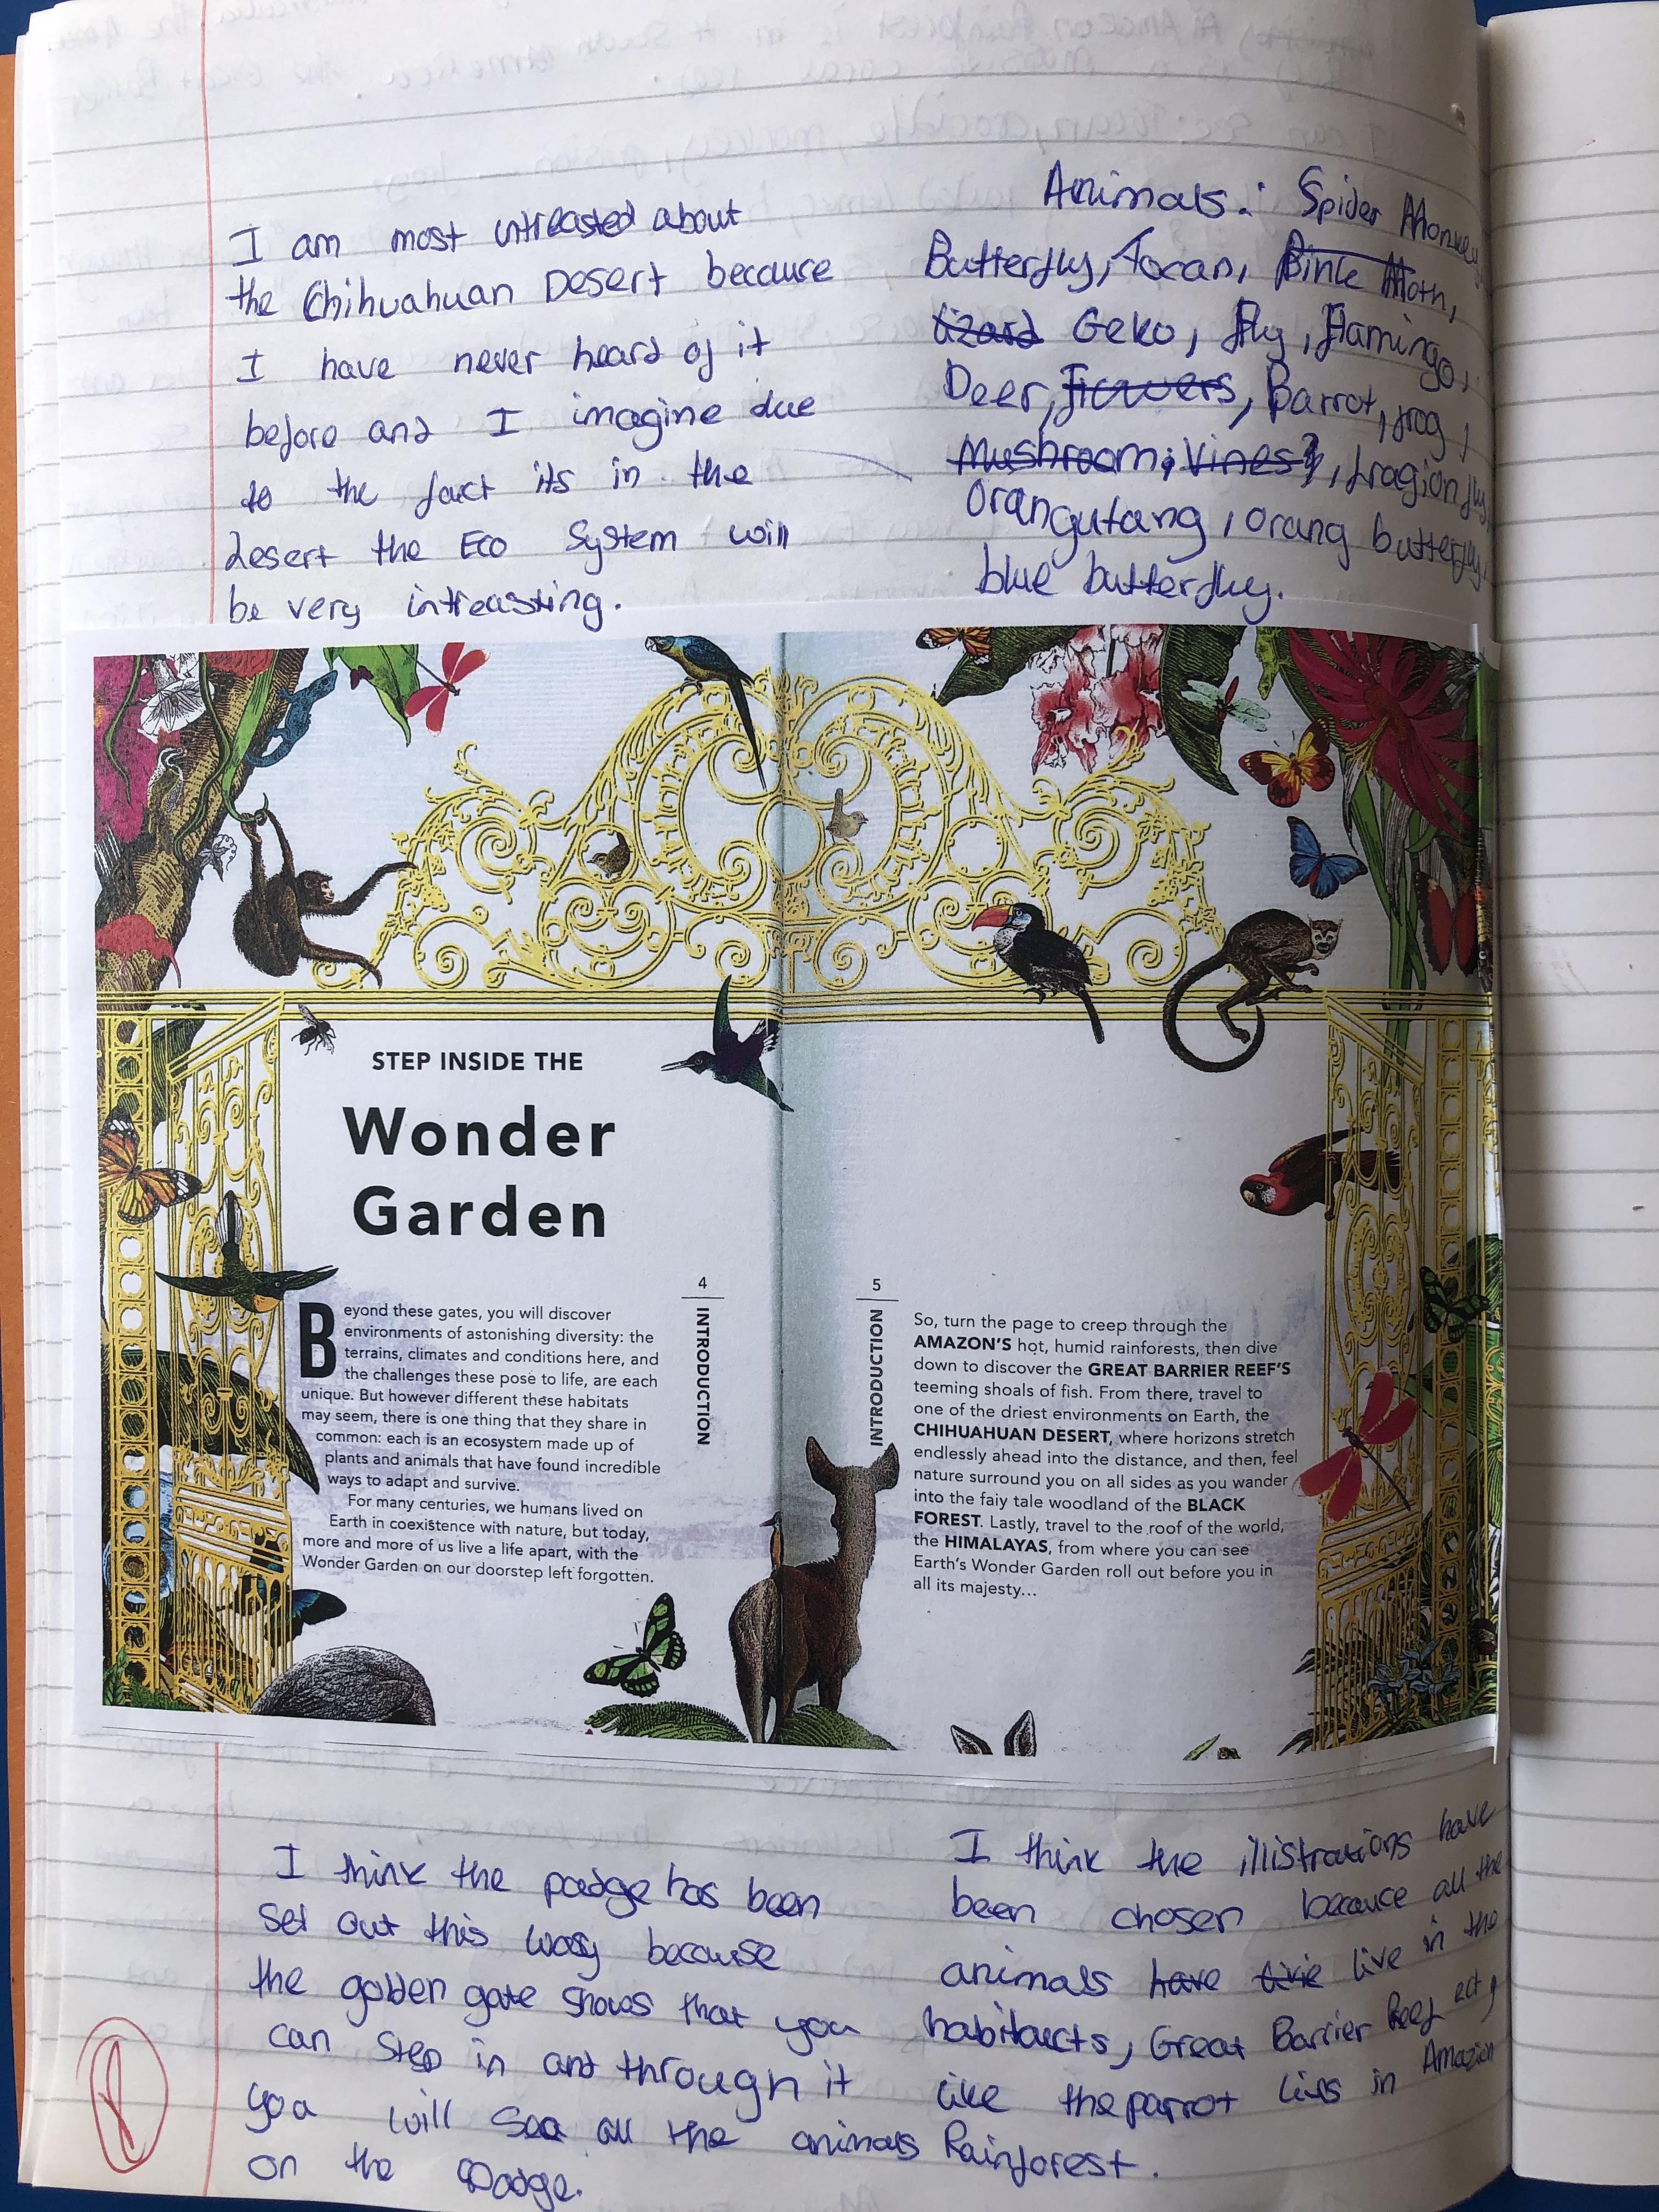 I am most intreasted about
the Chihuahuan Desert because
I have never heard of it
before and I imagine due
to the fact its in the
desert the Eco System will
be very intreasting.
Animals: Spider Monkey
Butterfly, Tocan, Pink Moth,
Lizard Geko, fly, flamingo,
Deer, Flowers, Parrot, frog,
Mushroom, Vines, dragion fly,
Orangutang, orang butterfly,
blue butterfly.
STEP INSIDE THE
Wonder
Garden
Beyond these gates, you will discover
environments of astonishing diversity: the
terrains, climates and conditions here, and
the challenges these pose to life, are each
unique. But however different these habitats
may seem, there is one thing that they share in
common: each is an ecosystem made up of
plants and animals that have found incredible
ways to adapt and survive.
For many centuries, we humans lived on
Earth in coexistence with nature, but today,
more and more of us live a life apart, with the
Wonder Garden on our doorstep left forgotten.
4
INTRODUCTION
5
INTRODUCTION
So, turn the page to creep through the
AMAZON'S hot, humid rainforests, then dive
down to discover the GREAT BARRIER REEF'S
teeming shoals of fish. From there, travel to
one of the driest environments on Earth, the
CHIHUAHUAN DESERT, where horizons stretch
endlessly ahead into the distance, and then, feel
nature surround you on all sides as you wander
into the faiy tale woodland of the BLACK
FOREST. Lastly, travel to the roof of the world,
the HIMALAYAS, from where you can see
Earth's Wonder Garden roll out before you in
all its majesty...
I think the padge has been
set out this way because
the golden gate shows that you
can step in and through it
you will see all the animals
on the padge.
I think the illistrations have
been chosen because all the
animals have live live in the
habitaucts, Great Barrier Reef ect,
like the parrot livs in Amazion
Rainforest.